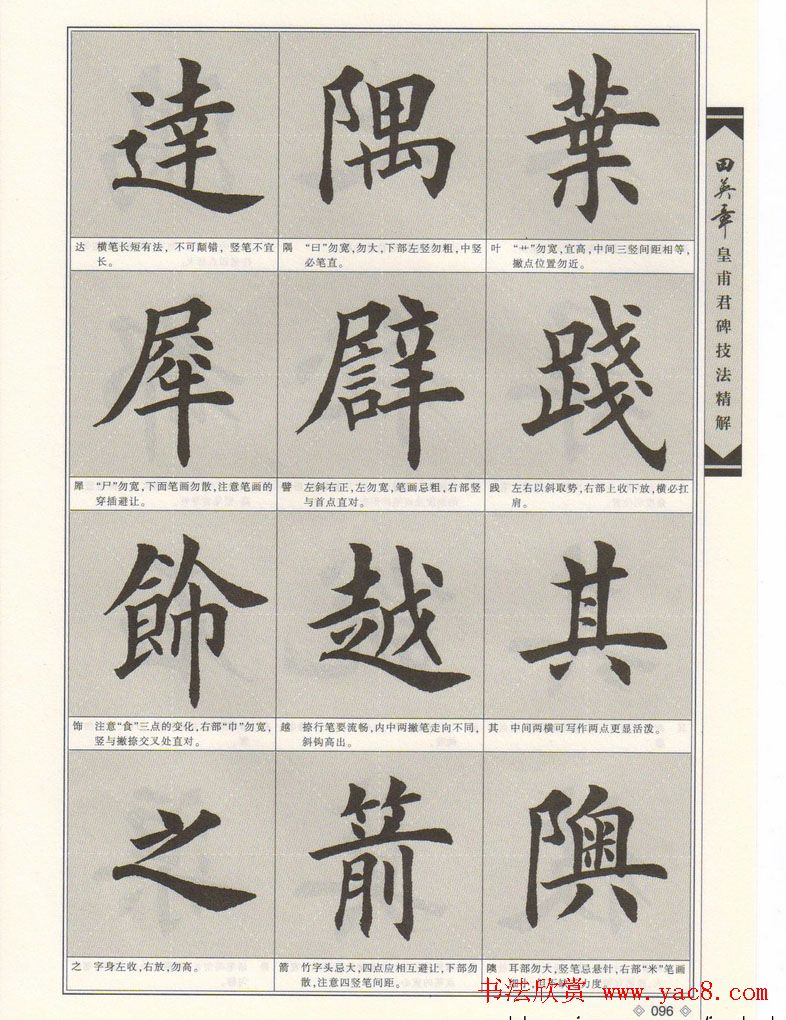 達
隅
葉
达 横笔长短有法，不可颠错，竖笔不宜
长。
隅 “曰”勿宽，勿大，下部左竖勿粗，中竖
必笔直。
叶 “艹”勿宽，宜高，中间三竖间距相等，
撇点位置勿近。
犀
譬
踐
犀 “尸”勿宽，下面笔画勿散，注意笔画的
穿插避让。
譬 左斜右正，左勿宽，笔画忌粗，右部竖
与首点直对。
践 左右以斜取势，右部上收下放，横必扛
肩。
飾
越
其
饰 注意“食”三点的变化，右部“巾”勿宽，
竖与撇捺交叉处直对。
越 捺行笔要流畅，内中两撇笔走向不同，
斜钩高出。
其 中间两横可写作两点更显活泼。
之
箭
隩
之 字身左收，右放，勿高。
箭 竹字头忌大，四点应相互避让，下部勿
散，注意四竖笔间距。
隩 耳部勿大，竖笔忌悬针，右部“米”笔画
力度。
田英章
皇甫君碑技法精解
书法欣赏 www.yac8.com
096